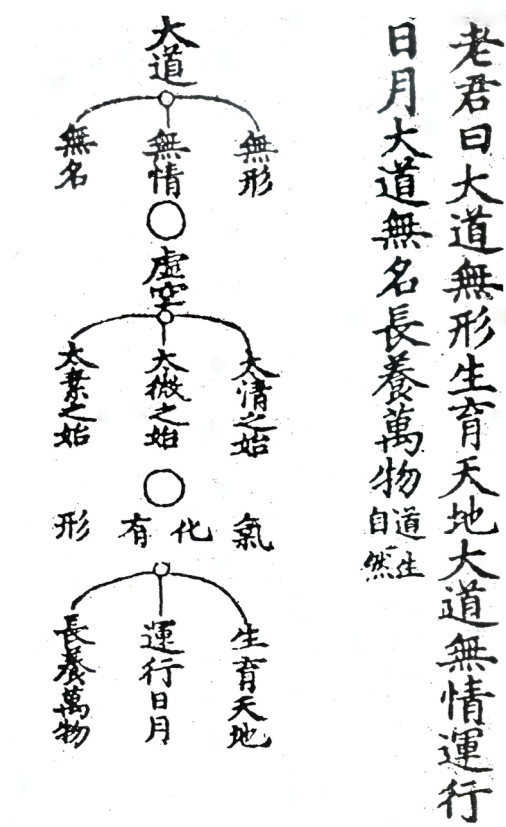 老君曰大道無形生育天地大道無情運行
日月大道無名長養萬物道生
自然
大道
無形
無情
無名
虛空
太清之始
太微之始
太素之始
氣化有形
生育天地
運行日月
長養萬物